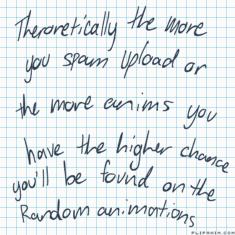 Theroretically the more
you spam upload or
the more anims you
have the higher chance
you'll be found on the
Random animations
FLIPANIM.COM